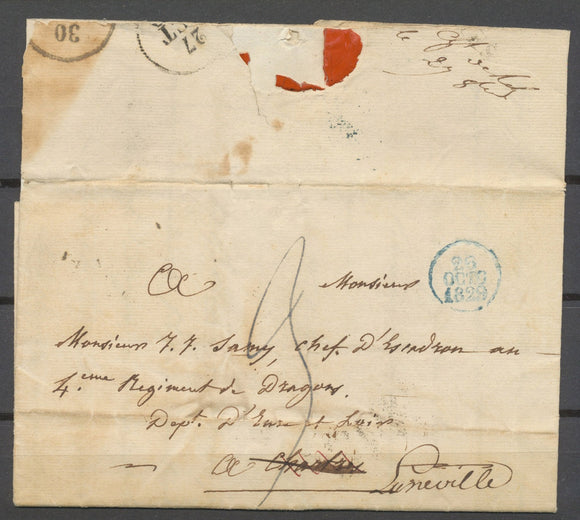 30
27
le
A Monsieur
29
OCTO
1829
Monsieur J. J. Samy, chef. D'Escadron au
4.eme Regiment de Dragons.
Dept. D'Eure et Loir
A Chartres Luneville